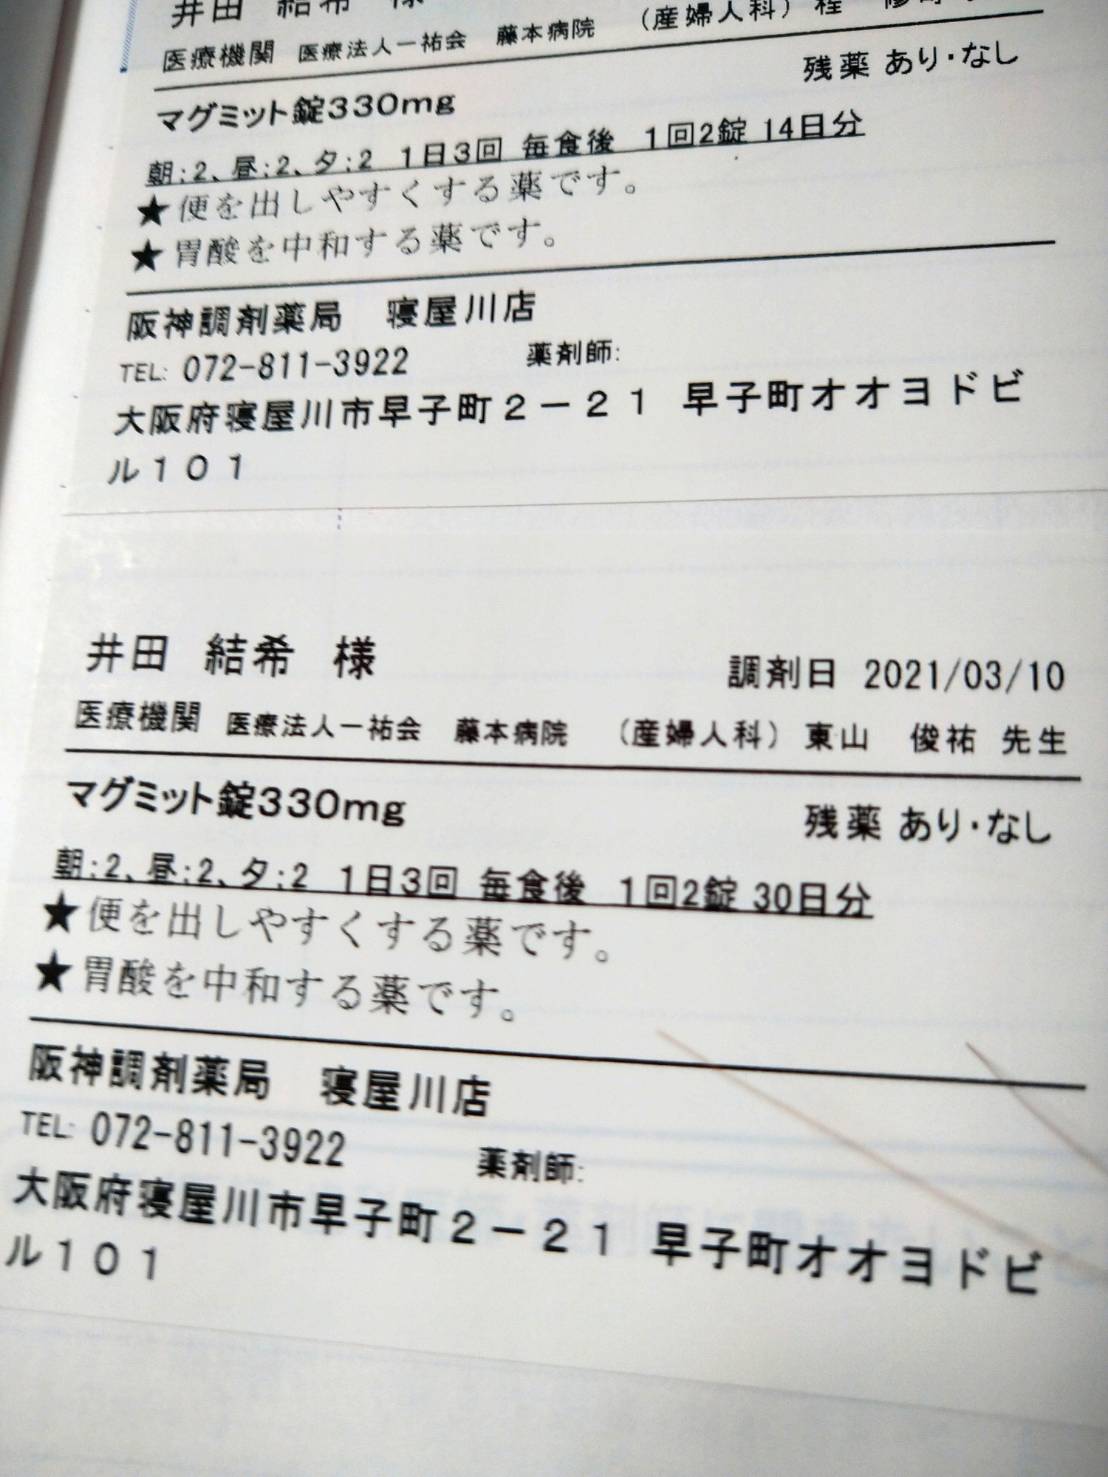 井田 結希 様
医療機関 医療法人一祐会 藤本病院 （産婦人科）
マグミット錠330mg 残薬 あり・なし
朝:2、昼:2、夕:2 1日3回 毎食後 1回2錠 14日分
★便を出しやすくする薬です。
★胃酸を中和する薬です。
阪神調剤薬局 寝屋川店
TEL: 072-811-3922 薬剤師:
大阪府寝屋川市早子町２－２１ 早子町オオヨドビ
ル１０１
井田 結希 様 調剤日 2021/03/10
医療機関 医療法人一祐会 藤本病院 （産婦人科）東山 俊祐 先生
マグミット錠330mg 残薬 あり・なし
朝:2、昼:2、夕:2 1日3回 毎食後 1回2錠 30日分
★便を出しやすくする薬です。
★胃酸を中和する薬です。
阪神調剤薬局 寝屋川店
TEL: 072-811-3922 薬剤師:
大阪府寝屋川市早子町２－２１ 早子町オオヨドビ
ル１０１